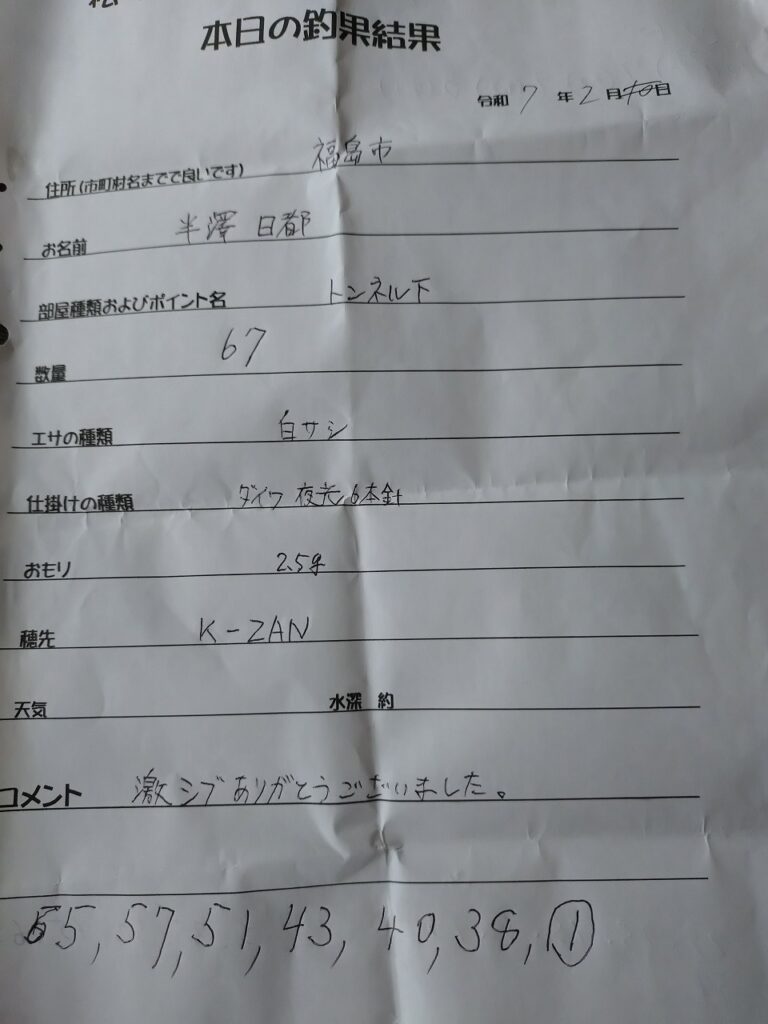 本日の釣果結果
令和 7 年 2 月 日
住所(市町村名までで良いです) 福島市
お名前 半澤 日都
部屋種類およびポイント名 トンネル下
数量 67
エサの種類 白サシ
仕掛けの種類 ダイワ 夜光6本針
おもり 2.5g
穂先 K-ZAN
天気 水深 約
コメント 激シブありがとうございました。
65, 57, 51, 43, 40, 38, ①